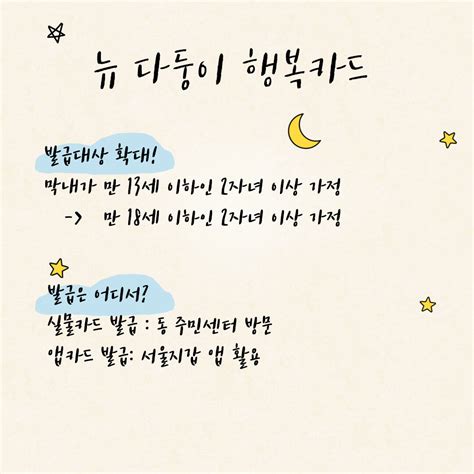 뉴 다둥이 행복카드
발급대상 확대!
막내가 만 13세 이하인 2자녀 이상 가정
-> 만 18세 이하인 2자녀 이상 가정
발급은 어디서?
실물카드 발급 : 동 주민센터 방문
앱카드 발급: 서울지갑 앱 활용